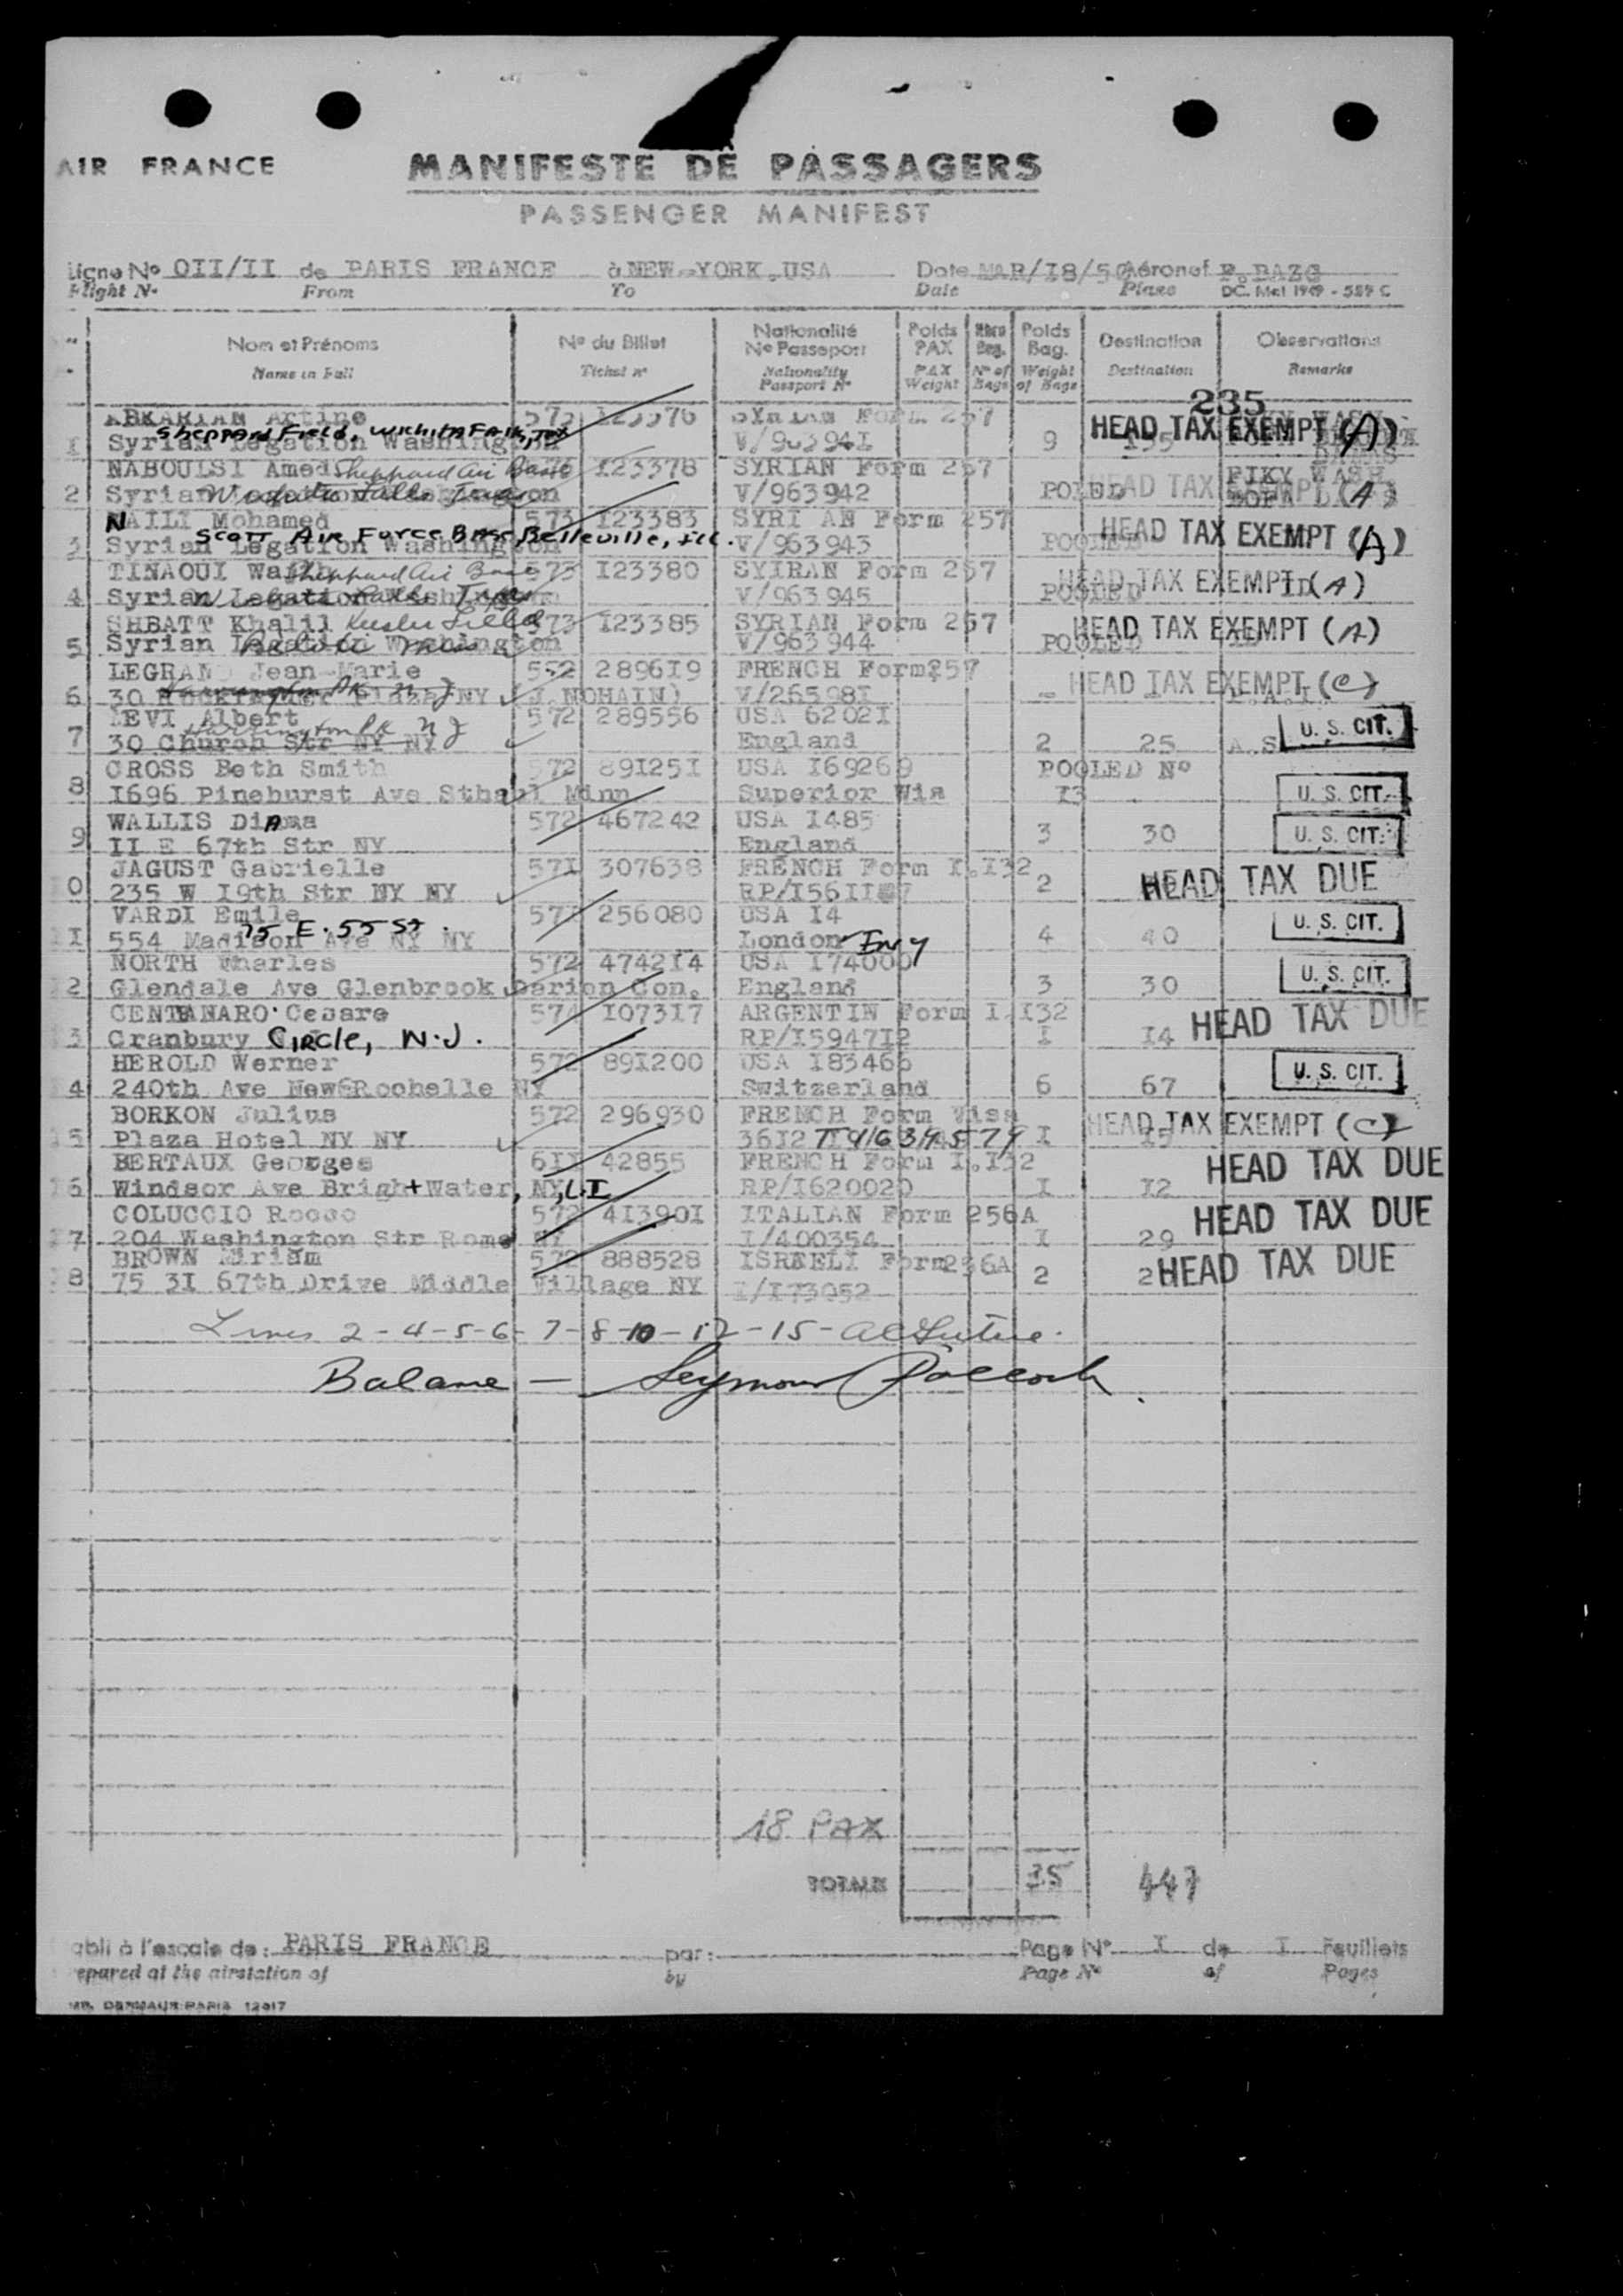 AIR FRANCE
MANIFESTE DE PASSAGERS
PASSENGER MANIFEST
Ligne No OII/II de PARIS FRANCE à NEW-YORK.USA Date MAR/I8/50 Aéronef
Flight N° From To Date Plane DC. Mai 1949 - 589 C
Nom et Prénoms N° du Billet Nationalité N° Passeport Poids PAX Nbre Bag. Poids Bag. Destination Observations
Name in Full Ticket n° Nationality Passport N° PAX Weight N° of Bags Weight of Bags Destination Remarks
235
ABKARIAN Artine 573 123376 SYRIAN Form 257
Sheppard Field, Wichita Falls, Tex HEAD TAX EXEMPT (A)
1 Syrian Legation Washington V/963941 9 195
NABOULSI Amed Sheppard Air Base 123378 SYRIAN Form 257 PIKY WASH
2 Syrian Legation Washington V/963942 POLED HEAD TAX EXEMPT (A)
NAILI Mohamed 573 123383 SYRI AN Form 257
Scott Air Force Base, Belleville, Ill. HEAD TAX EXEMPT (A)
3 Syrian Legation Washington V/963943 POOLED
TINAOUI Sheppard Air Base 573 I23380 SYIRAN Form 257 HEAD TAX EXEMPT (A)
4 Syrian Legation Washington V/963945 POOLED
SHBATT Khalil Keesler Field 573 I23385 SYRIAN Form 257 HEAD TAX EXEMPT (A)
5 Syrian Legation Washington V/963944 POOLED
LEGRAND Jean-Marie 552 289619 FRENCH Form 257
6 30 Rockfeller Plaza NY (J.NOHAIN) V/265981 - HEAD TAX EXEMPT (C)
LEVI Albert 572 289556 USA 62021
Harrington Pk N J
7 30 Church Str NY NY England 2 25 U. S. CIT.
CROSS Beth Smith 572 891251 USA I69269 POOLED N°
8 I696 Pinehurst Ave Sthaul Minn Superior Wis I3 U. S. CIT.
WALLIS Diana 572 467242 USA I485
9 II E 67th Str NY England 3 30 U. S. CIT.
JAGUST Gabrielle 57I 307638 FRENCH Form I.I32
10 235 W I9th Str NY NY 2 HEAD TAX DUE
VARDI Emile 256080 USA I4
75 E. 55 St.
11 554 Madison Ave NY NY London Eny 4 40 U. S. CIT.
NORTH Charles 572 474214 USA I74000
12 Glendale Ave Glenbrook Darien Con. England 3 30 U. S. CIT.
CENTANARO Cesare 574 107317 ARGENTIN Form I.I32
13 Cranbury Circle, N.J. RP/I594712 I I4 HEAD TAX DUE
HEROLD Werner 572 891200 USA I83466
14 240th Ave New Rochelle NY Switzerland 6 67 U. S. CIT.
BORKON Julius 572 296930 FRENCH Form Visa
15 Plaza Hotel NY NY 3612 I I5 HEAD TAX EXEMPT (C)
BERTAUX Georges 6II 42855 FRENCH Form I.I32
16 Windsor Ave Bright Water, NY, L.I RP/I620020 I I2 HEAD TAX DUE
COLUCCIO Rocco 572 413901 ITALIAN Form 256A
17 204 Washington Str Rome NY I/400354 I 29 HEAD TAX DUE
BROWN Miriam 572 888528 ISRAELI Form256A
18 75 3I 67th Drive Middle Village NY I/I73052 2 HEAD TAX DUE
Lines 2-4-5-6-7-8-10-12-15-
Balance - Seymour Pollock
18 PAX
TOTAUX 35 447
abli à l'escale de: PARIS FRANCE par: Page N° I de I Feuillets
epared at the airstation of by Page N° of Pages
IMP. DERMAUX PARIS 12017